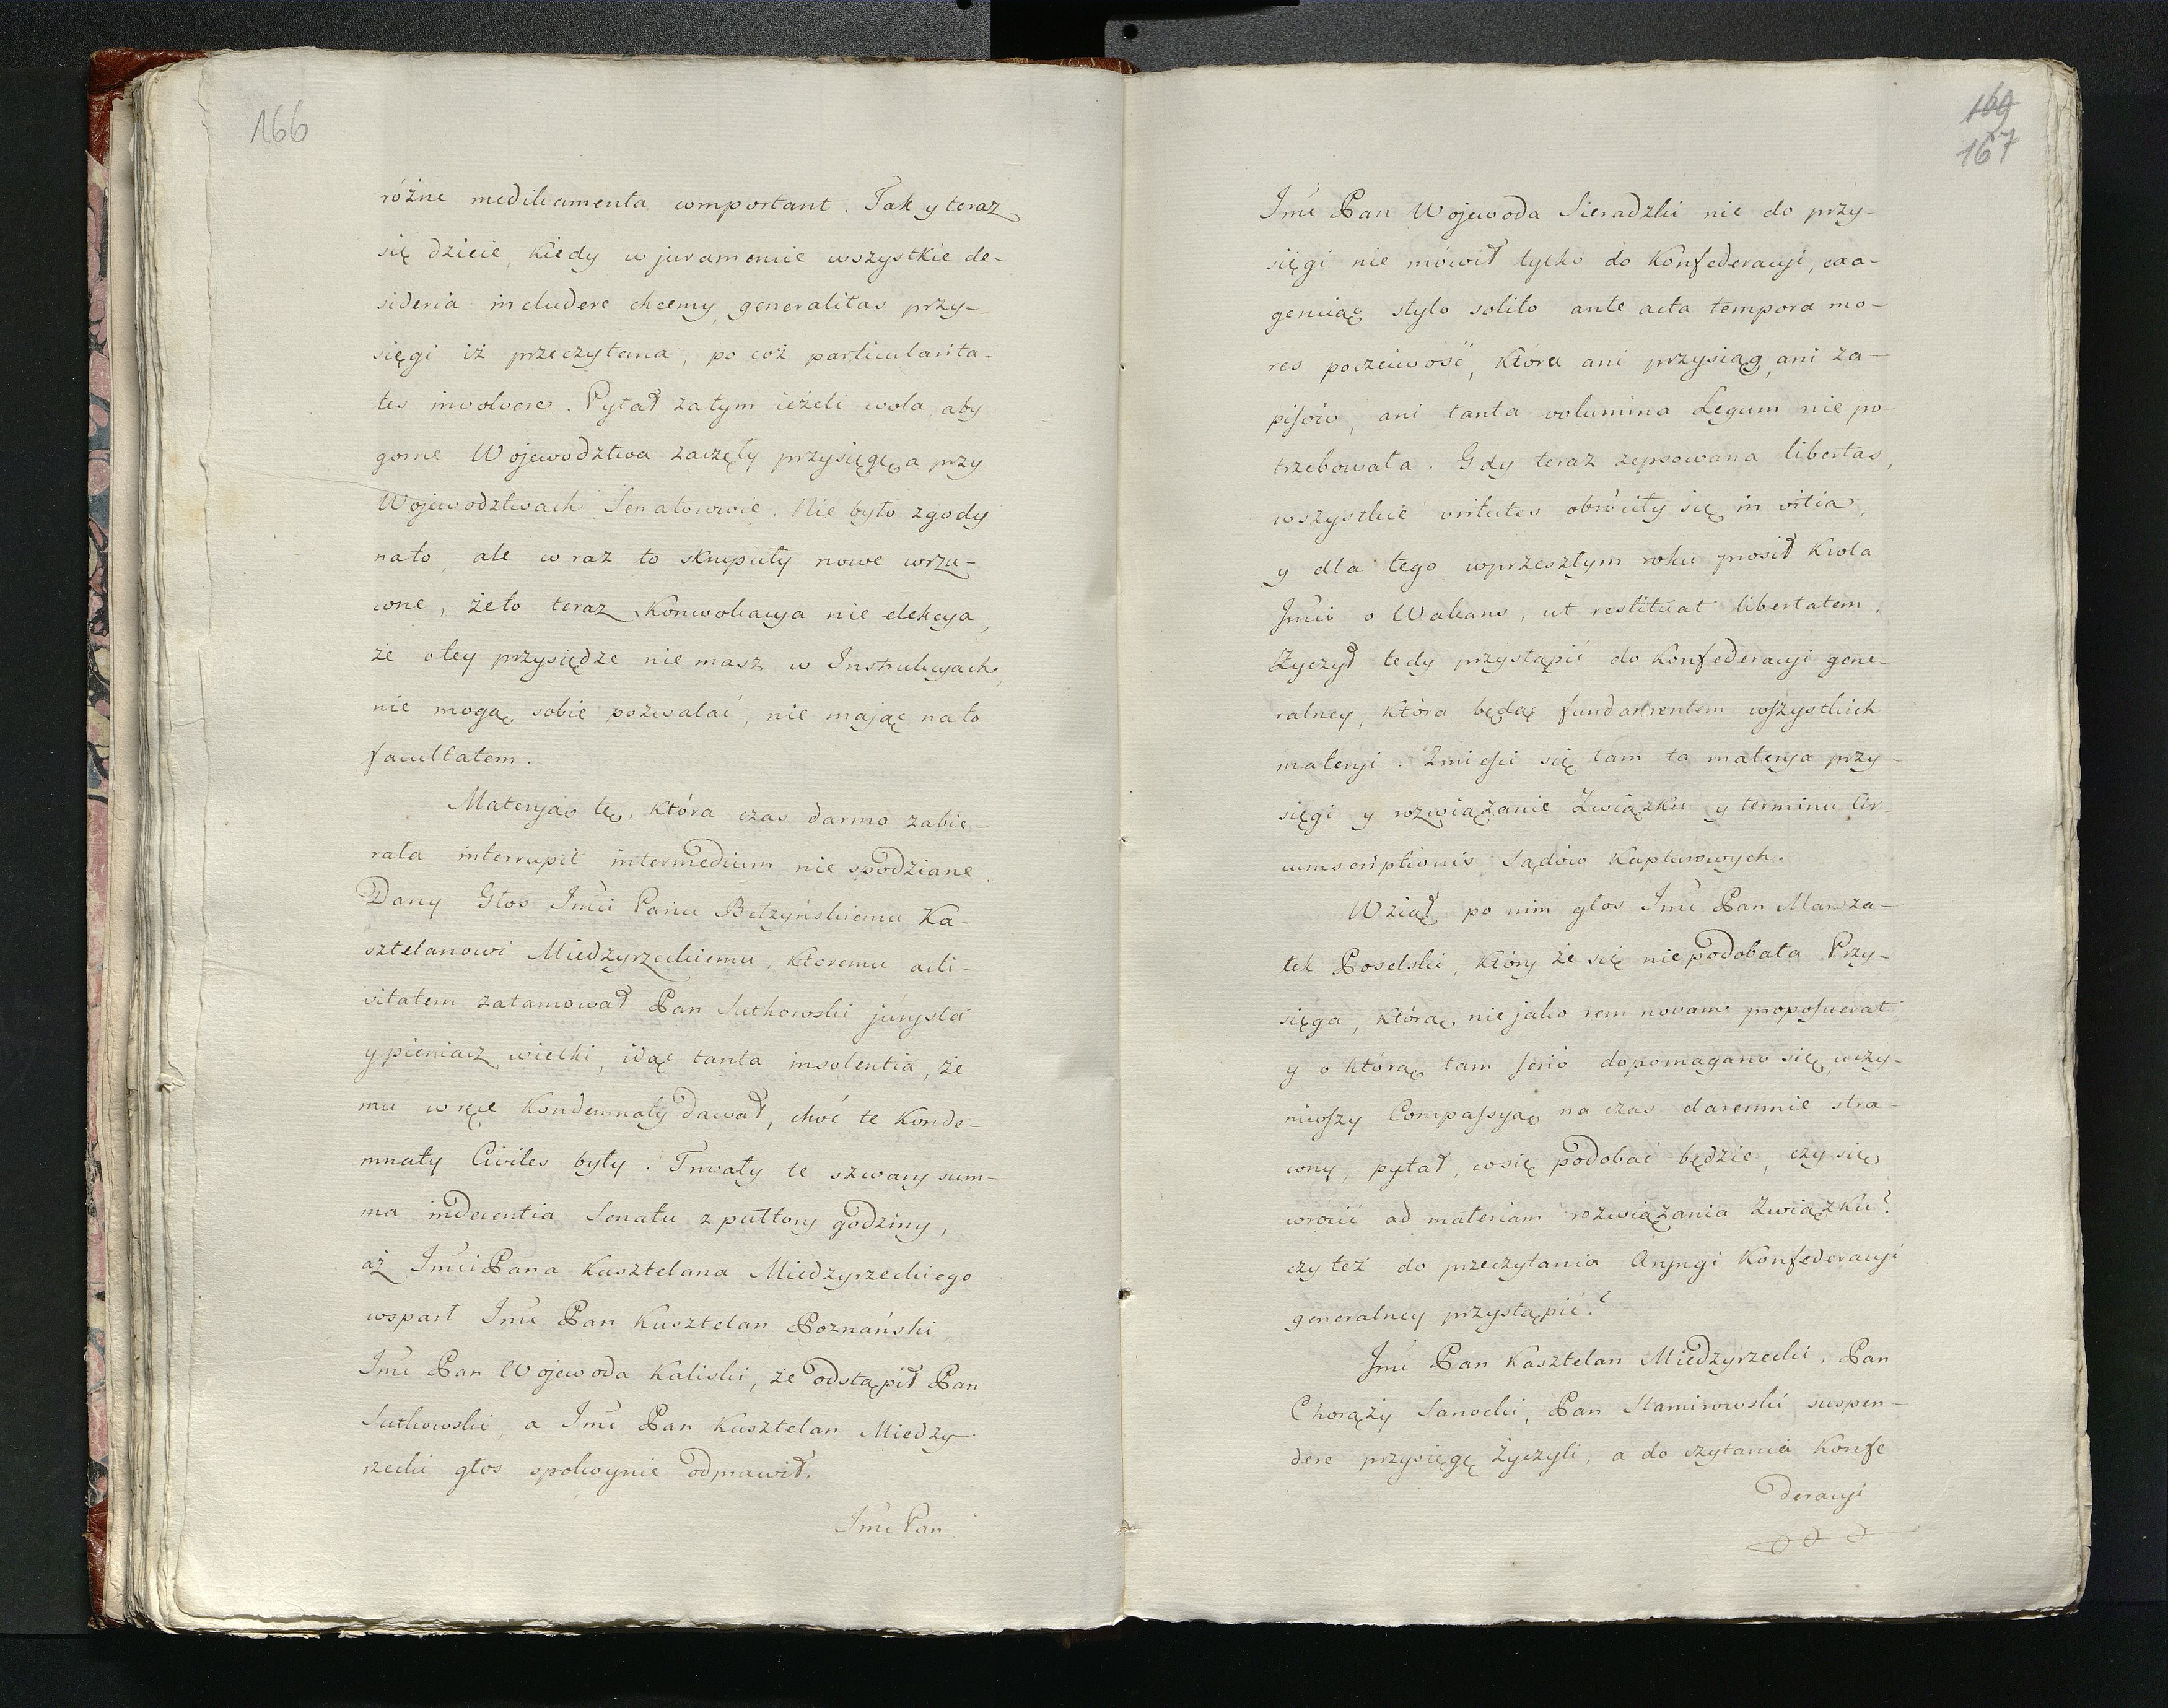 166
różne medikamenta comportant. Tak y teraz
się dzieie, kiedy w juramencie wszystkie de-
sideria includere chcemy, generalitas przy-
sięgi iż przeczytana, po coż particularita-
tes involvere. Pytał zatym ieżeli wola, aby
gorne Wojewodztwa zaczęły przysięgę, a przy
Wojewodztwach Senatorowie. Nie było zgody
nato, ale w raz to skrupuły nowe wrzu-
cone, żeto teraz Konwokacya nie elekcya,
że otey przysiędze nie masz w Instrukcyach,
nie mogą sobie pozwalać, nie mając nato
facultatem.
Materyją tę, która czas darmo zabie-
rała interrupit intermedium nie spodziane.
Dany Głos Jmći Panu Bełzyńskiemu Ka-
sztelanowi Miedzyrzeckiemu, ktoremu acti-
vitatem zatamował Pan Sutkowski jurysta
y pieniacz wielki, idąc tanta insolentia, że
mu w ręce Kondemnaty dawał, choć te Konde-
mnaty Civiles były. Trwały te szwary sum-
ma indecentia Senatu z pułtory godziny,
aż Jmći Pana Kasztelana Miedzyrzeckiego
wsparł Jmć Pan Kasztelan Poznański
Jmć Pan Wojewoda Kaliski, że odstąpił Pan
Sutkowski, a Jmć Pan Kasztelan Miedzy
rzecki głos spokoynie odprawił.
Jmć Pan
169
167
Jmć Pan Wojewoda Sieradzki nie do przy-
sięgi nie mówił tylko do Konfederacyi, exa-
geruiąc stylo solito ante acta tempora mo-
res poczciwość, która ani przysiąg, ani za-
pisów, ani tanta volumina Legum nie po-
trzebowała. Gdy teraz zepsowana libertas,
wszystkie virtutes obróciły się in vitia,
y dla tego w przeszłym roku prosił Krola
Jmći o Wakans, ut restituat libertatem.
Życzył tedy przystąpić do Konfederacyi gene-
ralney, która będąc fundamentem wszystkich
materyi. Zmieści się tam ta materya przy-
sięgi y rozwiązanie Związku y terminu Cir
cumscriptionis Sądów Kapturowych.
Wziął po nim głos Jmć Pan Marsza-
łek Poselski, który że się niepodobała Przy-
sięga, którą nie jako rem novam proposuerat,
y o którą tam serio dopomagano się, uczy-
niwszy Compassyą na czas daremnie stra-
cony, pytał, co się podobać będzie, czy się
wrocić ad materiam rozwiązania Związku?
czy też do przeczytania Aryngi Konfederacyi
generalney przystąpić?
Jmć Pan Kasztelan Miedzyrzecki, Pan
Chorąży Sanocki, Pan Stamirowski suspen-
dere przysięgę życzyli, a do czytania Konfe
deracyi